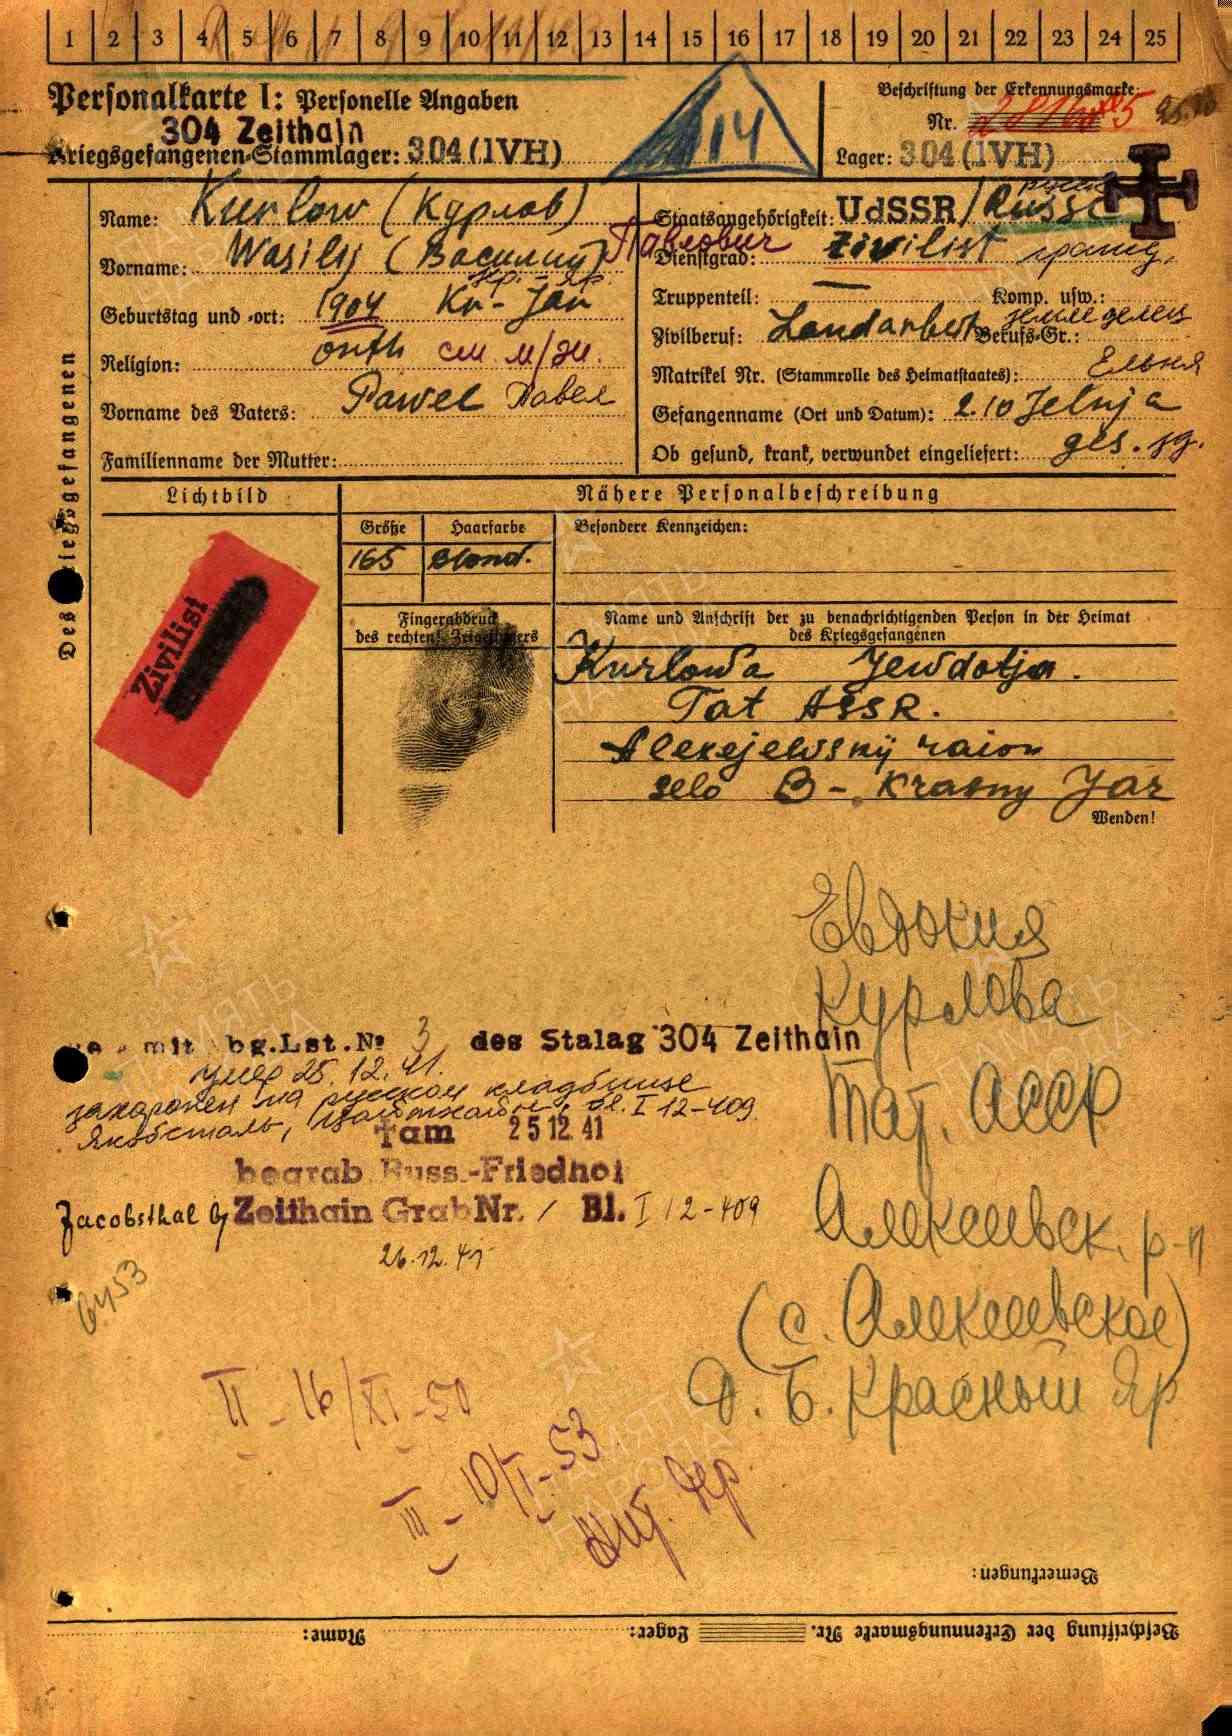 1 2 3 4 5 6 7 8 9 10 11 12 13 14 15 16 17 18 19 20 21 22 23 24 25
Personalkarte I: Personelle Angaben
304 Zeithain
Kriegsgefangenen-Stammlager: 304 (IVH)
14
Beschriftung der Erkennungsmarke:
Nr.
Lager: 304 (IVH)
Des Kriegsgefangenen
Name: Kurlow (Курлов)
Vorname: Wasilij (Василий) Павлович
Кр. - Яр.
Geburtstag und -ort: 1904 Kr - Jar
Religion: orth см. м/ж.
Vorname des Vaters: Pawel Павел
Familienname der Mutter:
русск
Staatsangehörigkeit: UdSSR / Russe
Dienstgrad: Zivilist гражд.
Truppenteil: — Komp. usw.:
земледелец
Zivilberuf: Landarbeit Berufs-Gr.:
Matrikel Nr. (Stammrolle des Heimatstaates):
Ельня
Gefangenname (Ort und Datum): 2.10 Jelnja
Ob gesund, krank, verwundet eingeliefert: ges. зд.
Lichtbild
Zivilist
Nähere Personalbeschreibung
Größe Haarfarbe Besondere Kennzeichen:
165 blond.
Fingerabdruck
des rechten Zeigefingers
Name und Anschrift der zu benachrichtigenden Person in der Heimat
des Kriegsgefangenen
Kurlowa Jewdotja.
Tat ASSR.
Alexejewsky raion
selo B - Krasny Jar
Wenden!
Евдокия
Курлова
Тат. АССР
Алексеевск. р-н
(с. Алексеевское)
д. Б. Красный Яр
mit bg.Lst.№ 3 des Stalag 304 Zeithain
умер 25.12.41.
захоронен на русском кладбище
Якобсталь, Цайтхайн, бл. I 12-409.
†am 25 12. 41
begrab. Russ.-Friedhof
Jacobsthal b/ Zeithain Grab Nr. / Bl. I 12-409
26.12.41
6453
II - 16/XI-50
III - 10/II-53
Bemerkungen:
Beschriftung der Erkennungsmarke Nr. Lager: Name:
ПАМЯТЬ НАРОДА